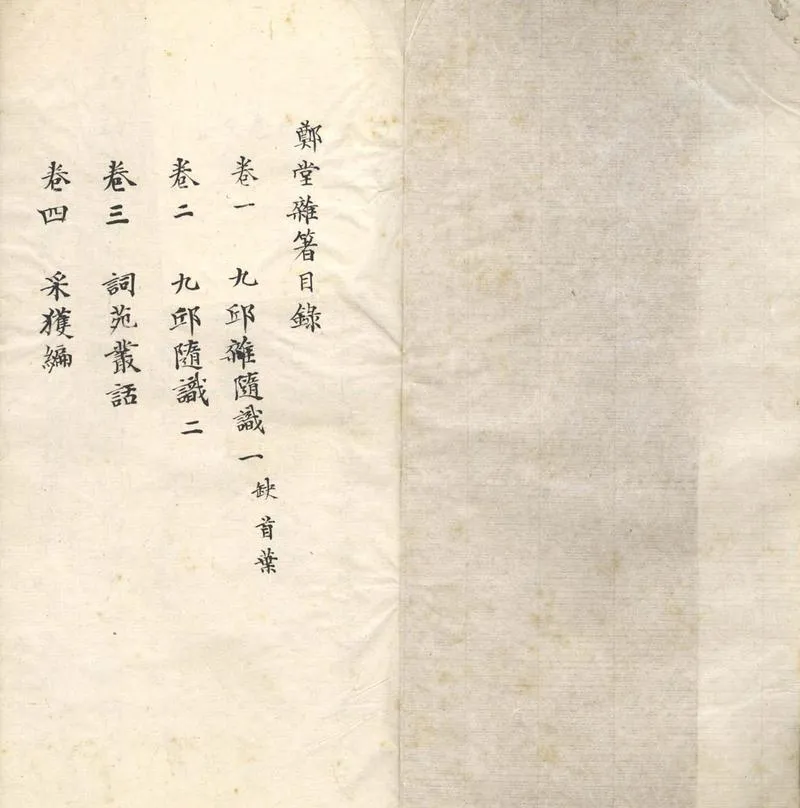 鄭堂雜箸目錄
卷一 九邱雜隨識一 缺首葉
卷二 九邱隨識二
卷三 詞苑叢話
卷四 采獲編